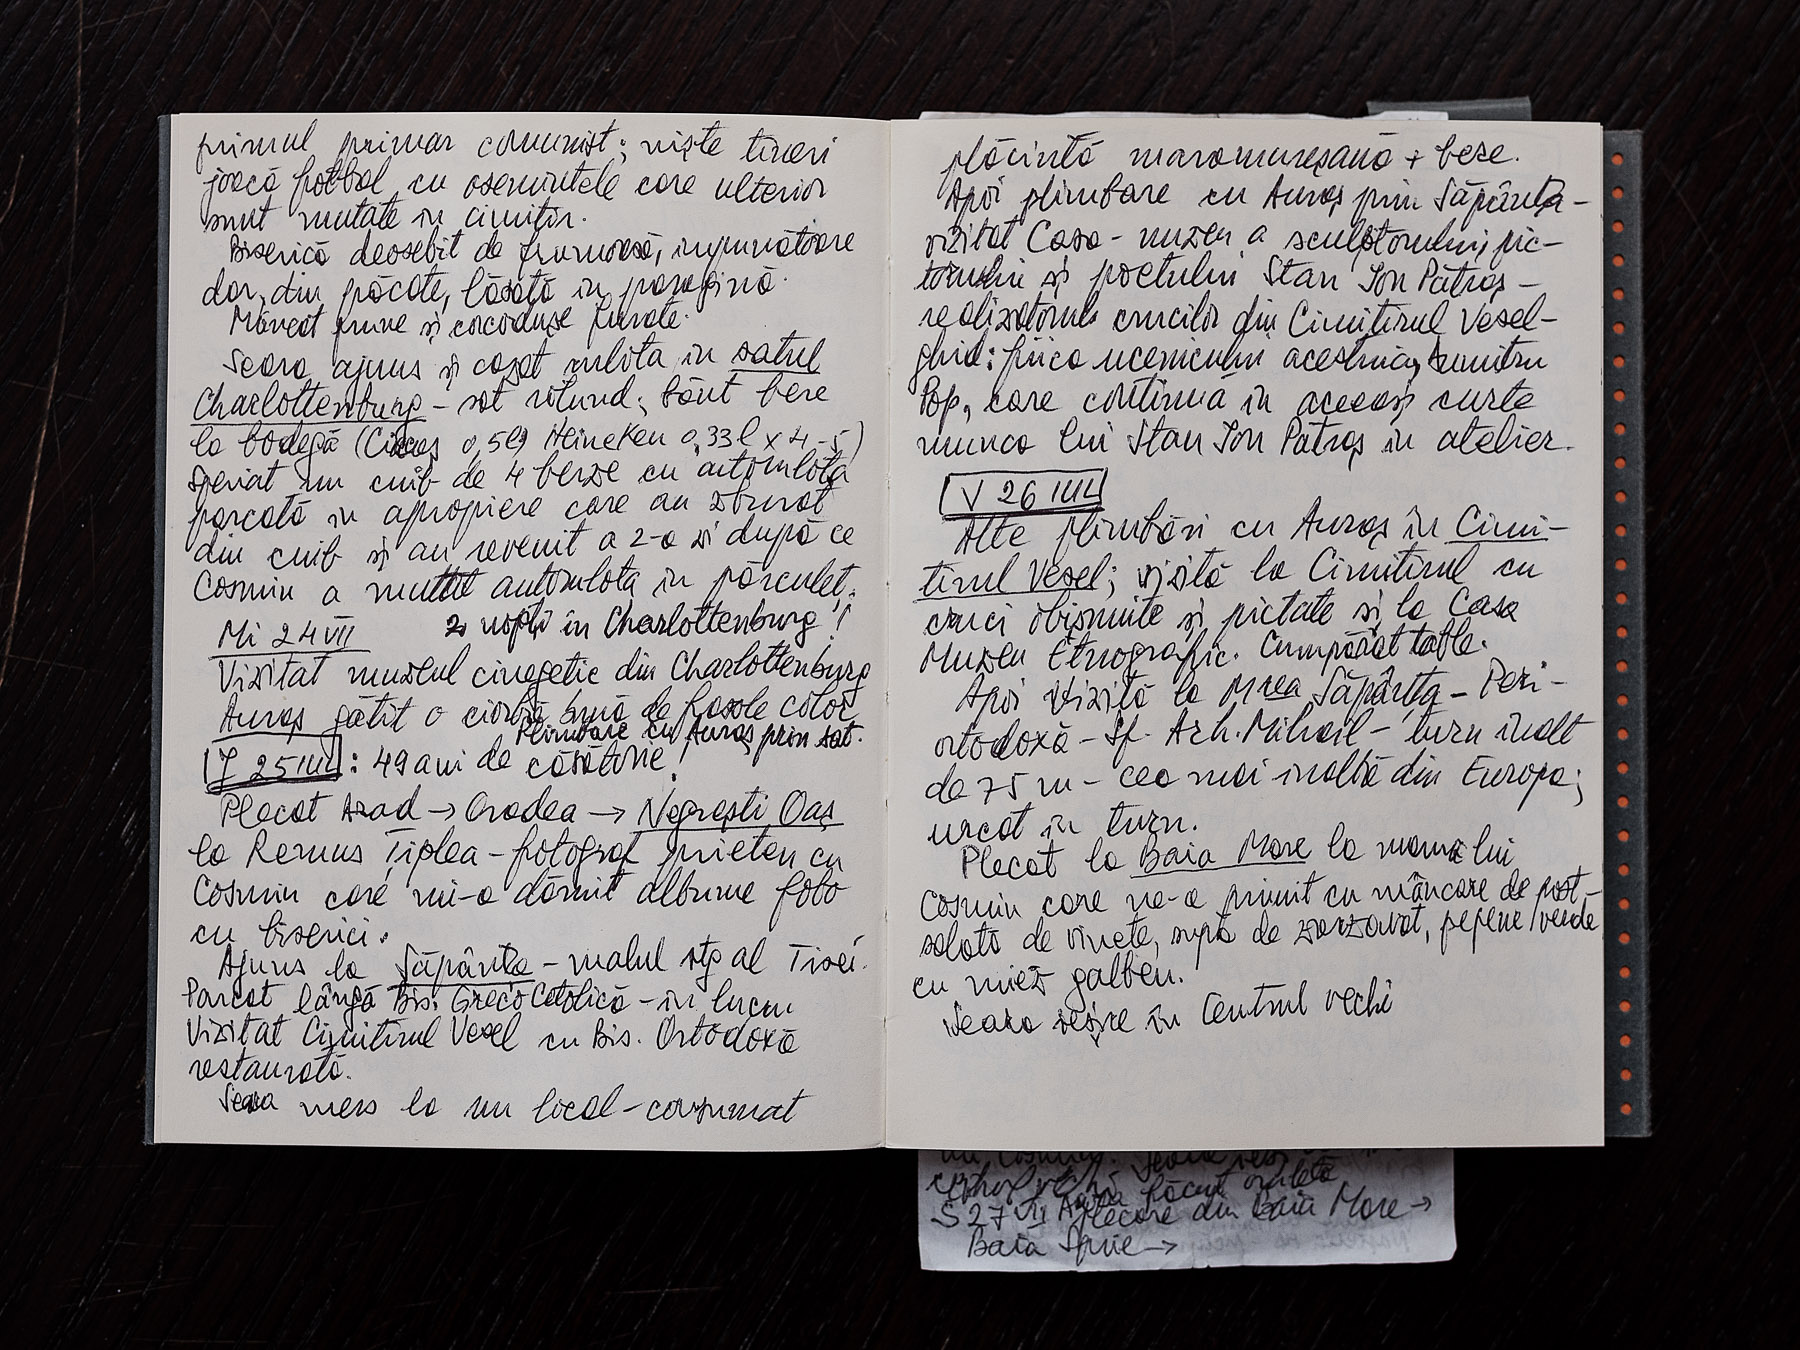 primul primar comunist; niște tineri
joacă fotbal cu osemintele care ulterior
sunt mutate în cimitir.
Biserică deosebit de frumoasă, impunătoare
dar, din păcate, lăsată în paragină.
Mâncat prune și corcodușe furate.
Seara ajuns și cazat rulota în satul
Charlottenburg – sat rotund; băut bere
la bodegă (Ciucaș 0,5l, Heineken 0,33l x 4-5)
Speriat un cuib de 4 berze cu autorulota
parcată în apropiere care au zburat
din cuib și au revenit a 2-a zi după ce
Cosmin a mutat autorulota în părculeț.
Mi 24 VII 2 nopți în Charlottenburg!
Vizitat muzeul cinegetic din Charlottenburg
Auraș gătit o ciorbă bună de fasole color
Plimbare cu Auraș prin sat.
J 25 IUL: 49 ani de căsătorie!
Plecat Arad → Oradea → Negrești Oaș
la Remus Țiplea – fotograf prieten cu
Cosmin care mi-a dăruit albume foto
cu biserici.
Ajuns la Săpânța – malul stg al Tisei.
Parcat lângă Bis. Greco Catolică – în lucru
Vizitat Cimitirul Vesel cu Bis. Ortodoxă
restaurată.
Seara mers la un local – consumat
plăcintă maramureșană + bere.
Apoi plimbare cu Auraș prin Săpânța –
vizitat Casa – muzeu a sculptorului, pic-
torului și poetului Stan Ion Pătraș –
realizatorul crucilor din Cimitirul Vesel –
ghid: fiica ucenicului acestuia, Dumitru
Pop, care continuă în aceeași curte
munca lui Stan Ion Pătraș în atelier.
V 26 IUL
Alte plimbări cu Auraș în Cimi-
tirul Vesel; vizită la Cimitirul cu
cruci obișnuite și pictate și la Casa
Muzeu Etnografic. Cumpărat table.
Apoi vizită la Mrea Săpânța – Peri –
ortodoxă – Sf. Arh. Mihail – turn înalt
de 75 m – cea mai înaltă din Europa;
urcat în turn.
Plecat la Baia Mare la mama lui
Cosmin care ne-a primit cu mâncare de post –
salată de vinete, supă de zarzavat, pepene verde
cu miez galben.
Seara ieșire în Centrul vechi
cu Cosmin. Seara
vechi
S 27 VII făcut omletă
plecare din Baia Mare →
Baia Sprie →